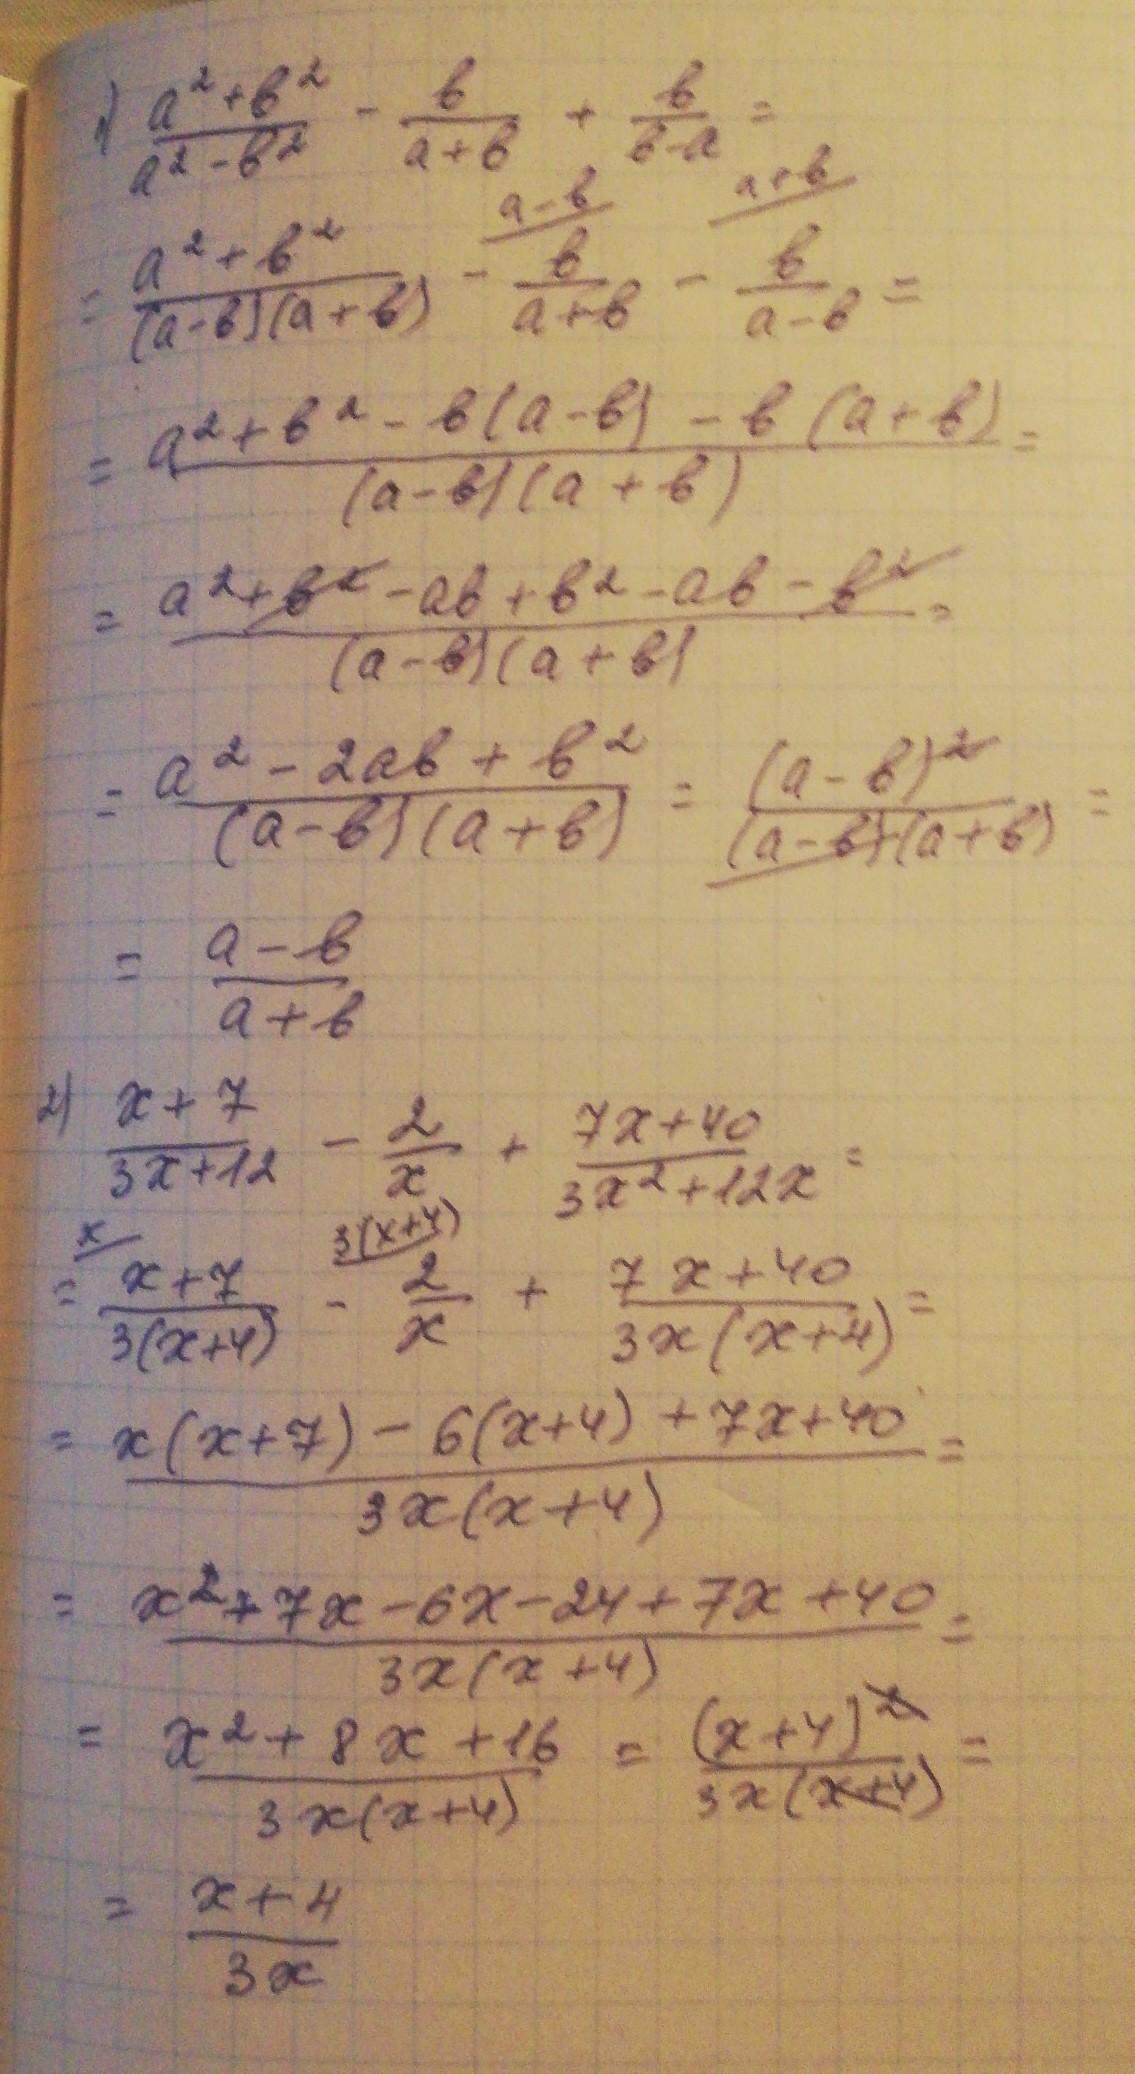 1) (a²+b²)/(a²-b²) - b/(a+b) + b/(b-a) =
= (a²+b²)/((a-b)(a+b)) - ᵃ⁻ᵇ b/(a+b) - ᵃ⁺ᵇ b/(a-b) =
= (a²+b²-b(a-b)-b(a+b))/((a-b)(a+b)) =
= (a²+b²-ab+b²-ab-b²)/((a-b)(a+b)) =
= (a²-2ab+b²)/((a-b)(a+b)) = (a-b)²/((a-b)(a+b)) =
= (a-b)/(a+b)
2) (x+7)/(3x+12) - 2/x + (7x+40)/(3x²+12x) =
= ˣ (x+7)/(3(x+4)) - ³⁽ˣ⁺⁴⁾ 2/x + (7x+40)/(3x(x+4)) =
= (x(x+7)-6(x+4)+7x+40)/(3x(x+4)) =
= (x²+7x-6x-24+7x+40)/(3x(x+4)) =
= (x²+8x+16)/(3x(x+4)) = (x+4)²/(3x(x+4)) =
= (x+4)/(3x)